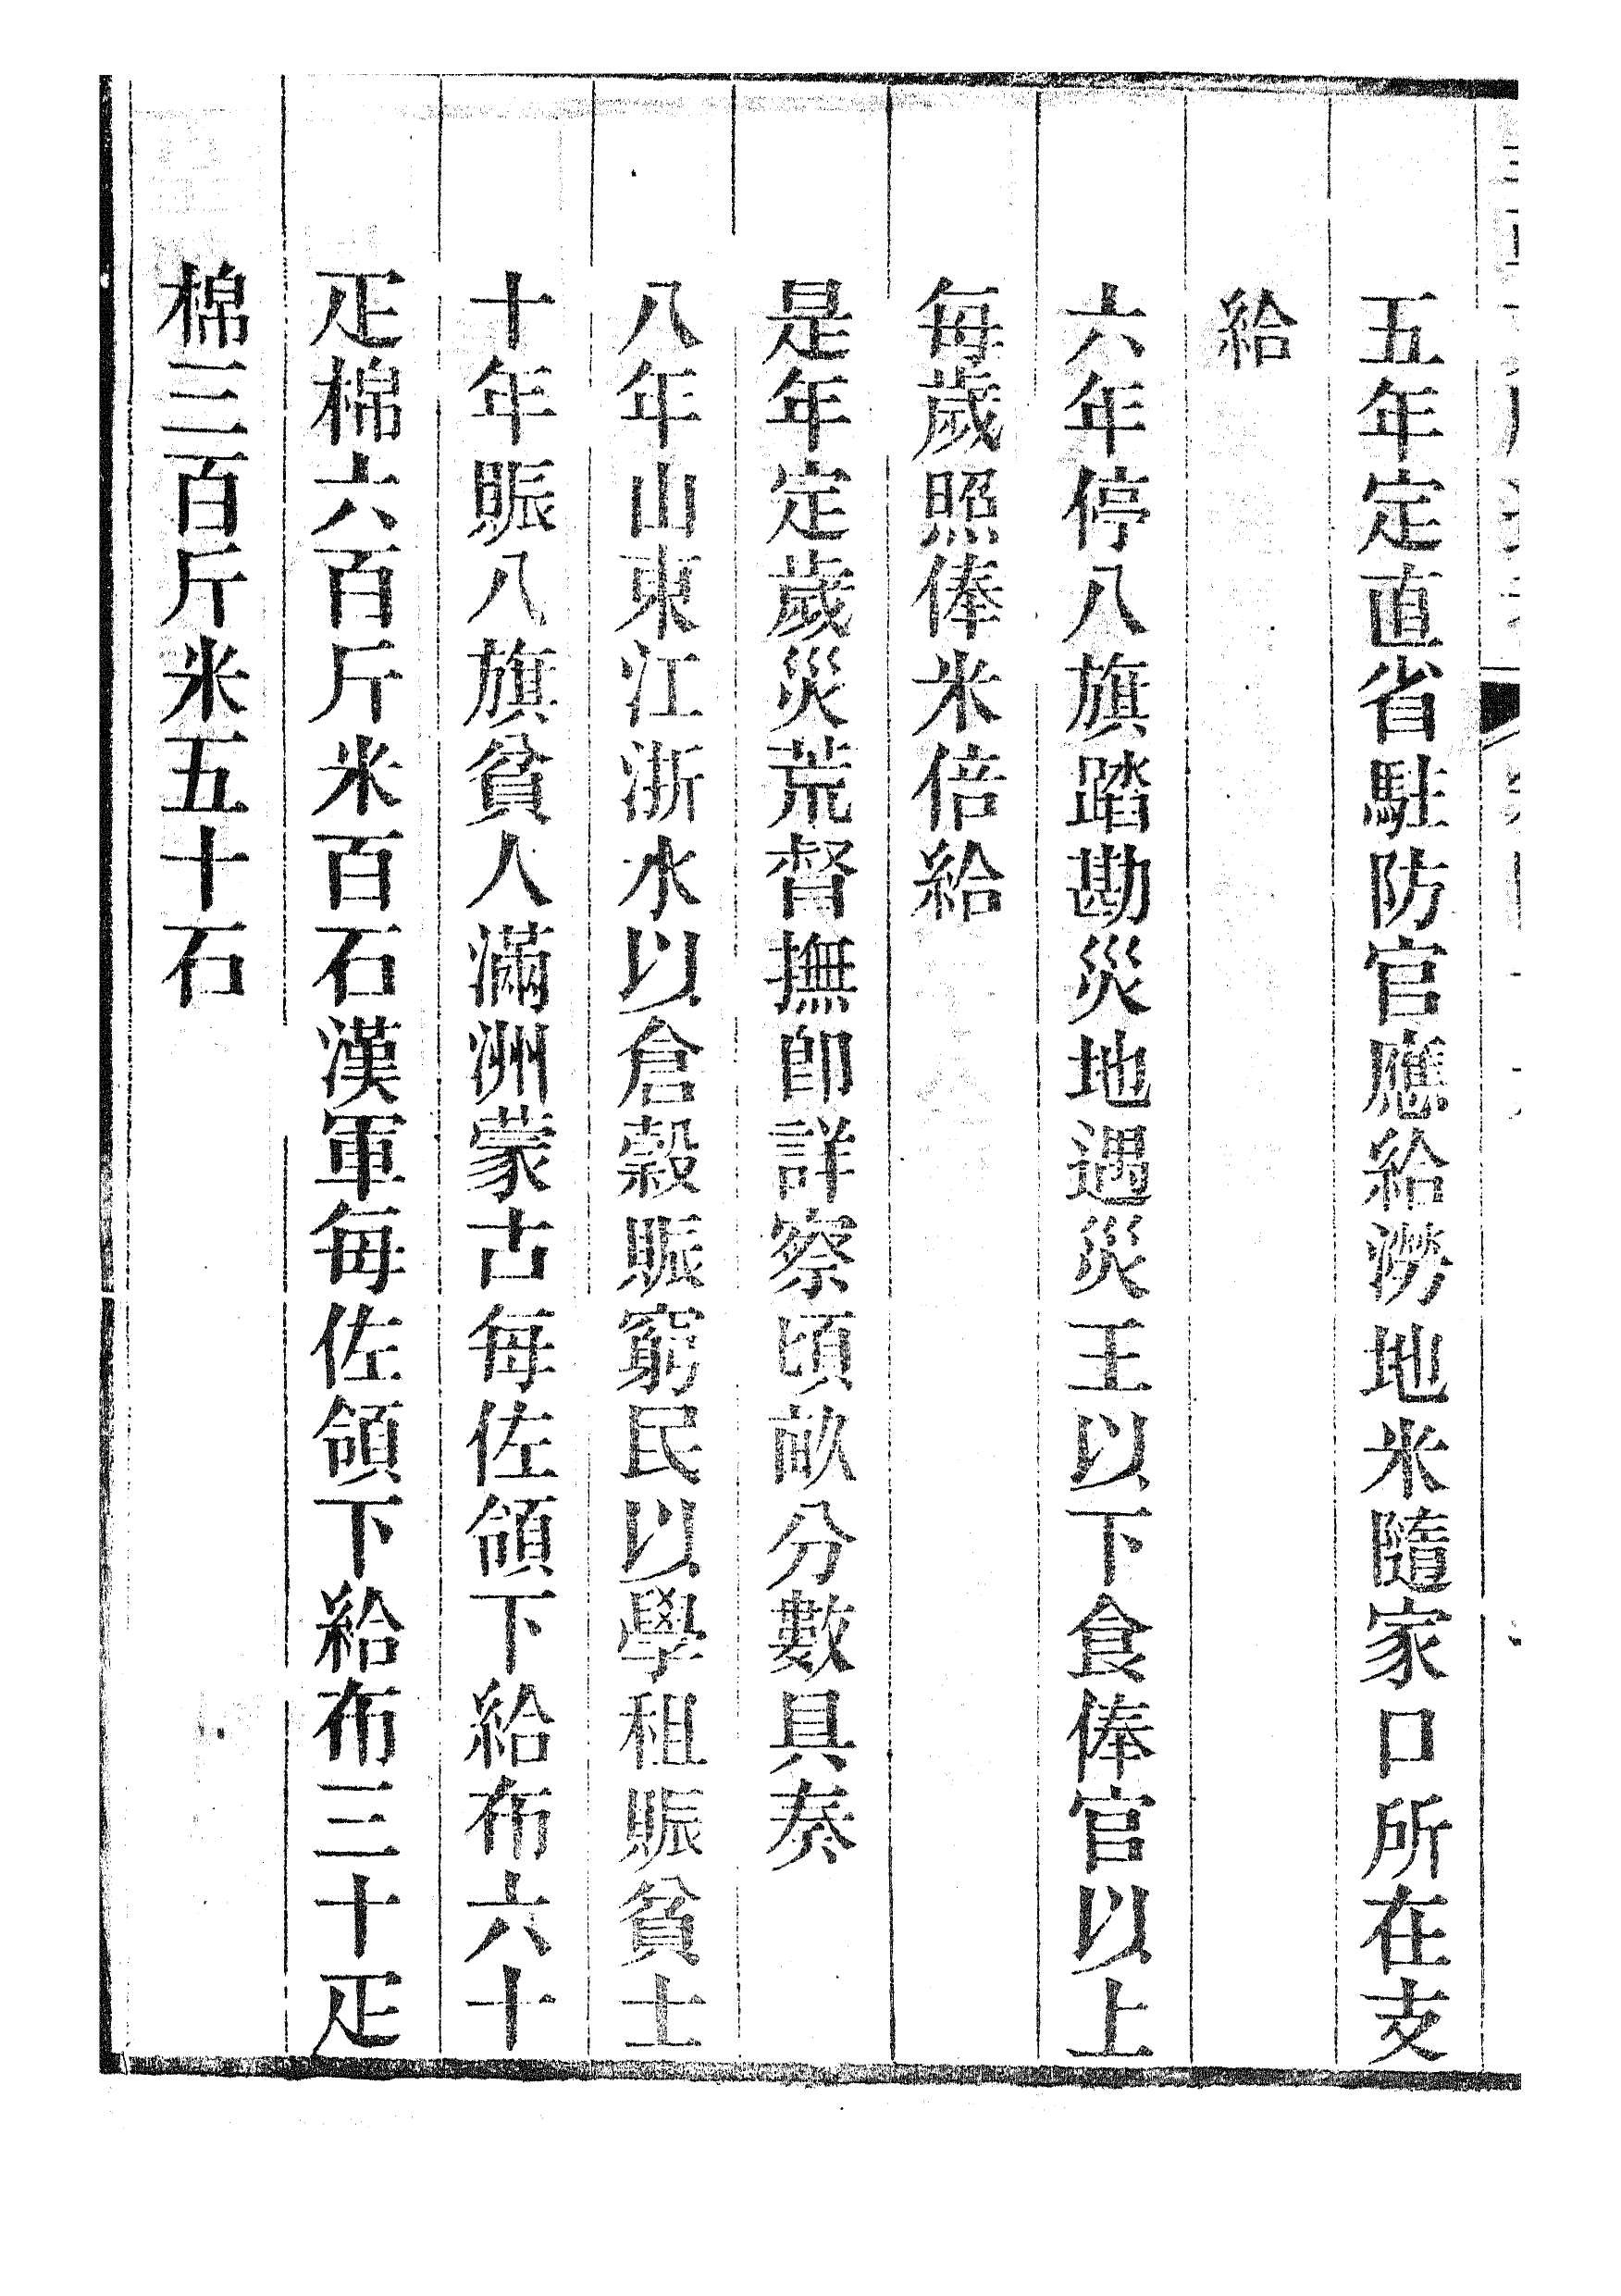 五年定直省駐防官應給澇地米隨家口所在支
給
六年停八旗踏勘災地遇災王以下食俸官以上
每歲照俸米倍給
是年定歲災荒督撫卽詳察頃畝分數具奏
八年山東江浙水以倉穀賑窮民以學租賑貧士
十年賑八旗貧人滿洲蒙古每佐領下給布六十
疋棉六百斤米百石漢軍每佐領下給布三十疋
棉三百斤米五十石